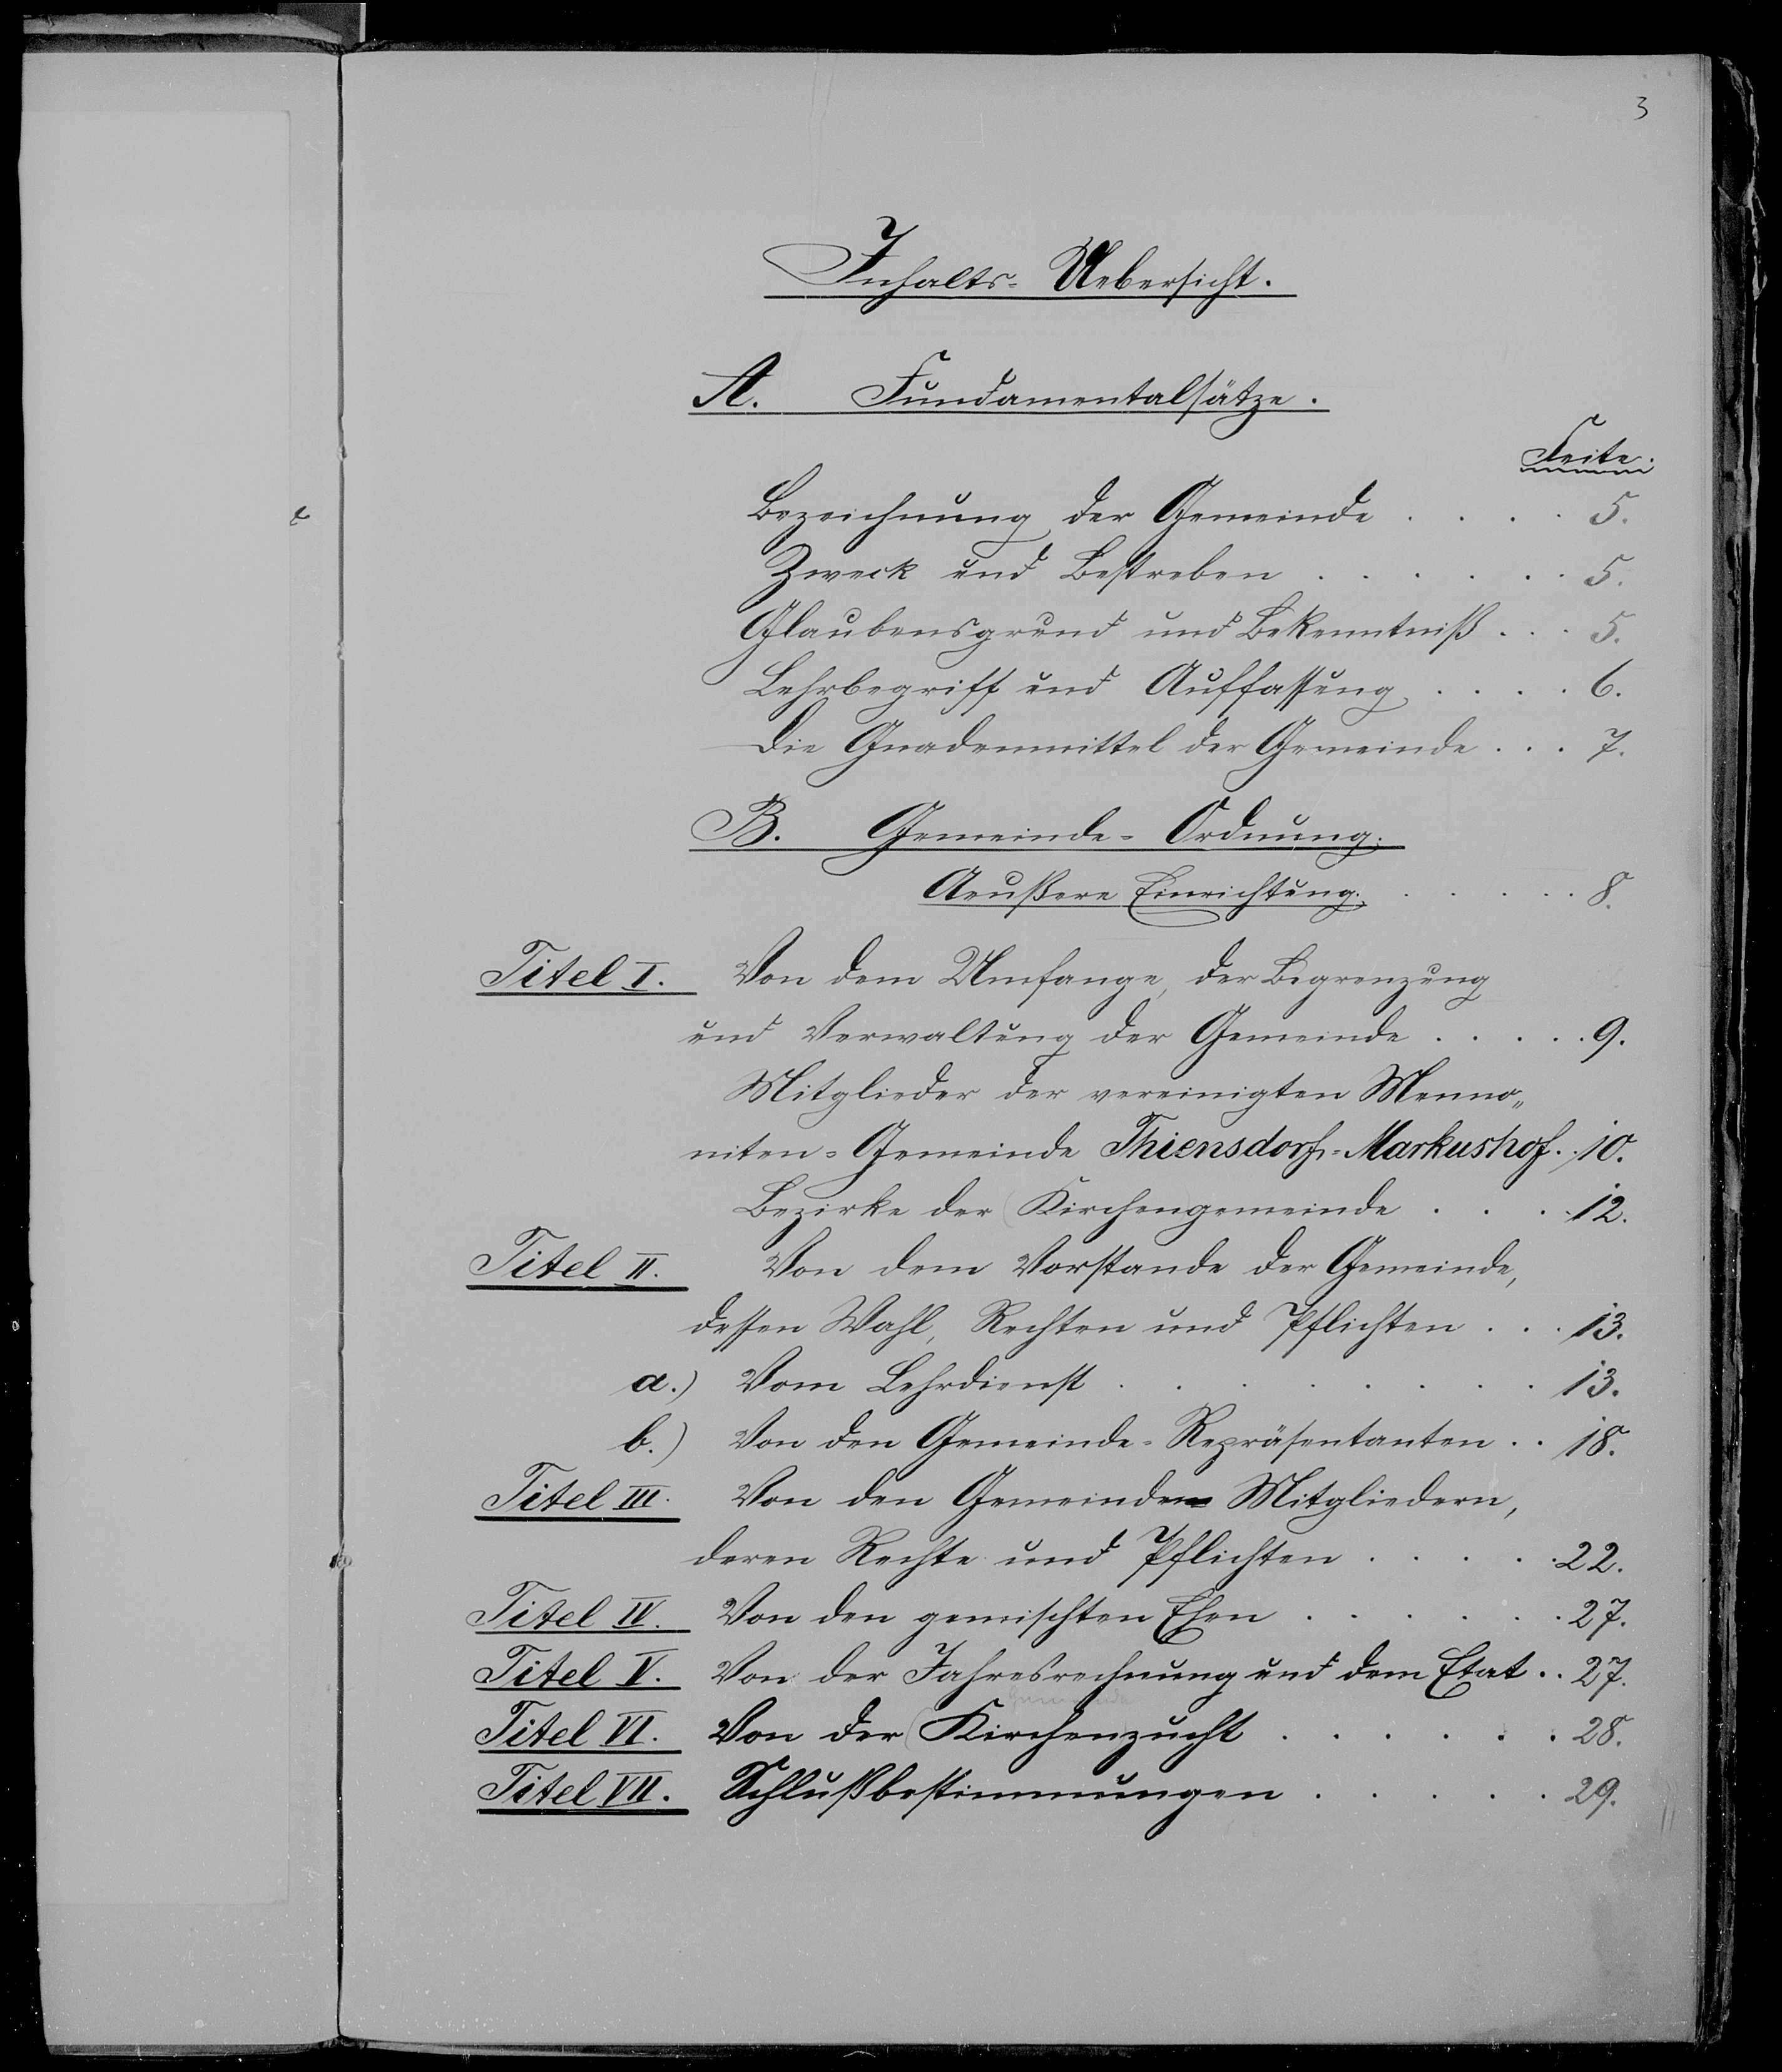 3
Inhalts-Uebersicht.
A. Fundamentalsätze.
Seite.
Bezeichnung der Gemeinde . . . . 5.
Zweck und Bestreben . . . . . . 5.
Glaubensgrund und Bekenntniß . . . 5.
Lehrbegriff und Auffassung . . . . 6.
Die Gnadenmittel der Gemeinde . . . 7.
B. Gemeinde-Ordnung.
Aeußere Einrichtung. . . . . . 8.
Titel I. Von dem Umfange, der Begrenzung
und Verwaltung der Gemeinde . . . . . 9.
Mitglieder der vereinigten Menno„
niten-Gemeinde Thiensdorf-Markushof. . 10.
Bezirke der (Kirchengemeinde . . . 12.
Titel II. Von dem Vorstande der Gemeinde,
dessen Wahl, Rechten und Pflichten . . . 13.
a.) Vom Lehrdienst . . . . . . . . 13.
b.) Von den Gemeinde-Repräsentanten . . 18.
Titel III. Von den Gemeinde- Mitgliedern,
deren Rechte und Pflichten . . . . . 22.
Titel IV. Von den gemischten Ehen . . . . . . 27.
Titel V. Von der Jahresrechnung und dem Etat . . 27.
Gemeinde
Titel VI. Von der (Kirchenzucht . . . . . . 28.
Titel VII. Schlußbestimmungen . . . . . 29.